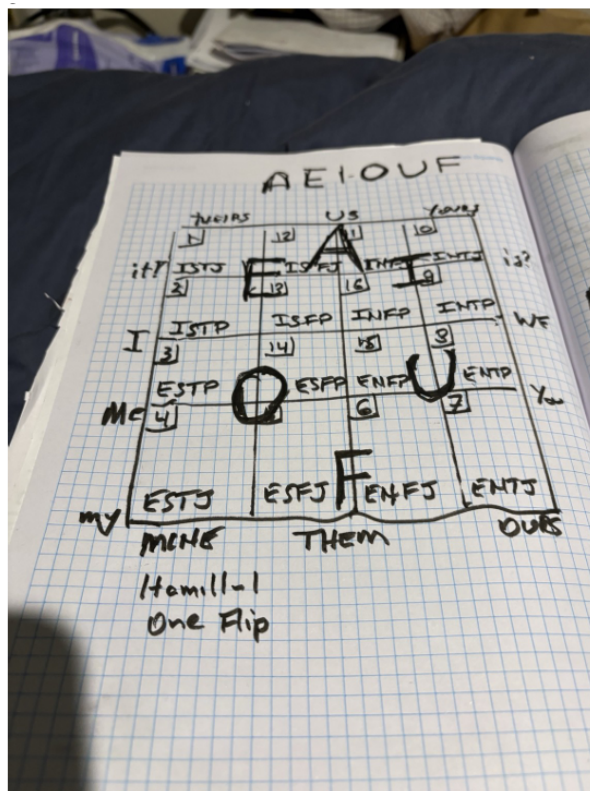 AEI.OUF
THEIRS US YOURS
1 12 11 10
it? ISTJ E ISFJ A INFJ I INTJ is?
2 13 16 9
I ISTP ISFP INFP INTP WE
3 14 15 8
Me ESTP O ESFP ENFP U ENTP You
4 6 7
my ESTJ ESFJ F ENFJ ENTJ
MINE THEM OURS
Hamill-1
One Flip